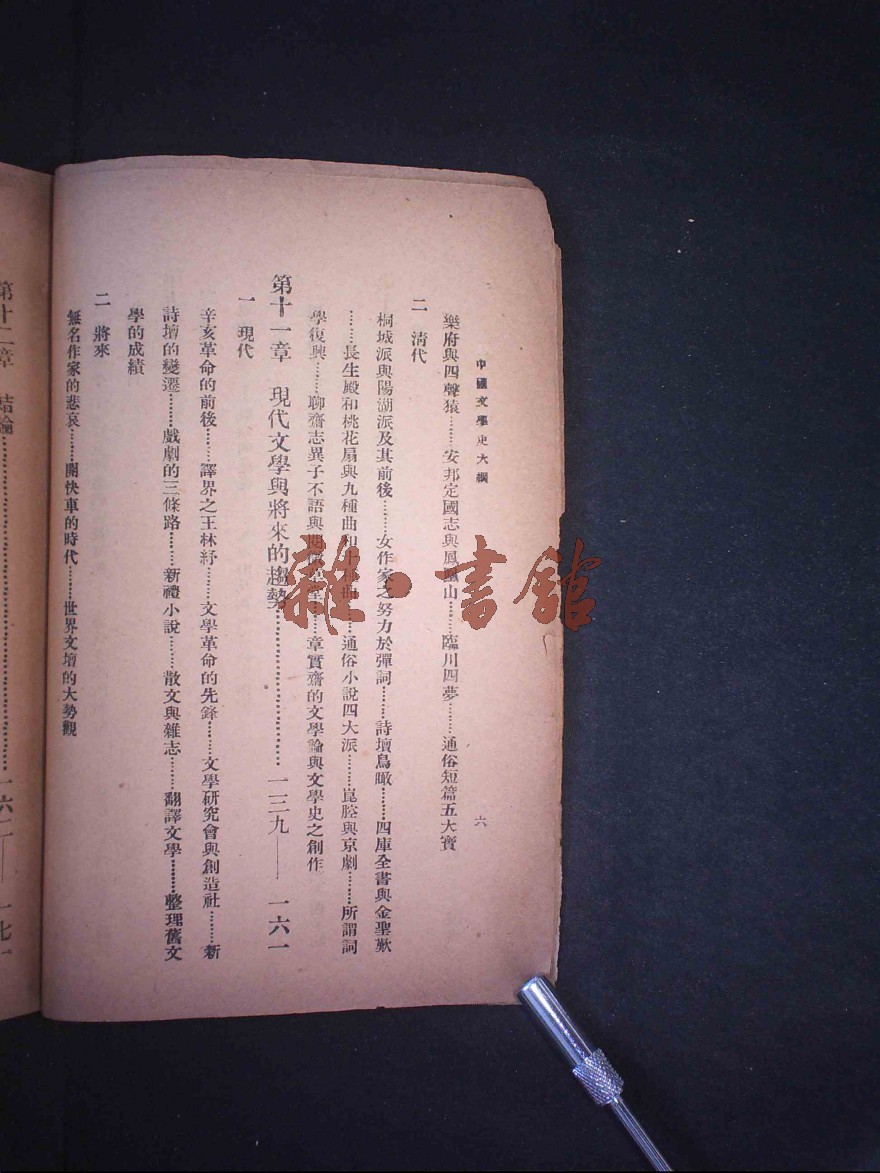 中國文學史大綱
六
樂府與四聲猿………安邦定國志與鳳凰山………臨川四夢………通俗短篇五大寶
二　清代
桐城派與陽湖派及其前後………女作家之努力於彈詞………詩壇鳥瞰………四庫全書與金聖歎
………長生殿和桃花扇與九種曲和十種曲………通俗小說四大派………崑腔與京劇………所謂詞
學復興………聊齋志異子不語與閱微草堂………章實齋的文學論與文學史之創作
第十一章　現代文學與將來的趨勢………一三九——一六一
一　現代
辛亥革命的前後………譯界之王林紓………文學革命的先鋒………文學研究會與創造社………新
詩壇的變遷………戲劇的三條路………新禮小說………散文與雜志………翻譯文學………整理舊文
學的成績
二　將來
無名作家的悲哀………開快車的時代………世界文壇的大勢觀
第十二章　結論………一六二——一七一
雜·書館